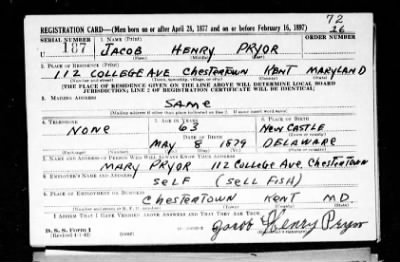 72
26
REGISTRATION CARD—(Men born on or after April 28, 1877 and on or before February 16, 1897)
SERIAL NUMBER 1. NAME (Print) ORDER NUMBER
U 187 JACOB HENRY PRYOR
(First) (Middle) (Last)
2. PLACE OF RESIDENCE (Print)
112 COLLEGE AVE CHESTERTOWN KENT MARYLAND
(Number and street) (Town, township, village, or city) (County) (State)
[THE PLACE OF RESIDENCE GIVEN ON THE LINE ABOVE WILL DETERMINE LOCAL BOARD
JURISDICTION; LINE 2 OF REGISTRATION CERTIFICATE WILL BE IDENTICAL]
3. MAILING ADDRESS
SAME
[Mailing address if other than place indicated on line 2. If same insert word same]
4. TELEPHONE 5. AGE IN YEARS 6. PLACE OF BIRTH
NONE 63 NEW CASTLE
DATE OF BIRTH (Town or county)
MAY 8 1879 DELAWARE
(Mo.) (Day) (Yr.) (State or country)
7. NAME AND ADDRESS OF PERSON WHO WILL ALWAYS KNOW YOUR ADDRESS
MARY PRYOR 112 COLLEGE AVE. CHESTERTOWN
8. EMPLOYER'S NAME AND ADDRESS
SELF (SELL FISH)
9. PLACE OF EMPLOYMENT OR BUSINESS
CHESTERTOWN KENT MD
(Number and street or R. F. D. number) (Town) (County) (State)
I AFFIRM THAT I HAVE VERIFIED ABOVE ANSWERS AND THAT THEY ARE TRUE.
D. S. S. Form 1
(Revised 4-1-42) (over)
Jacob Henry Pryor